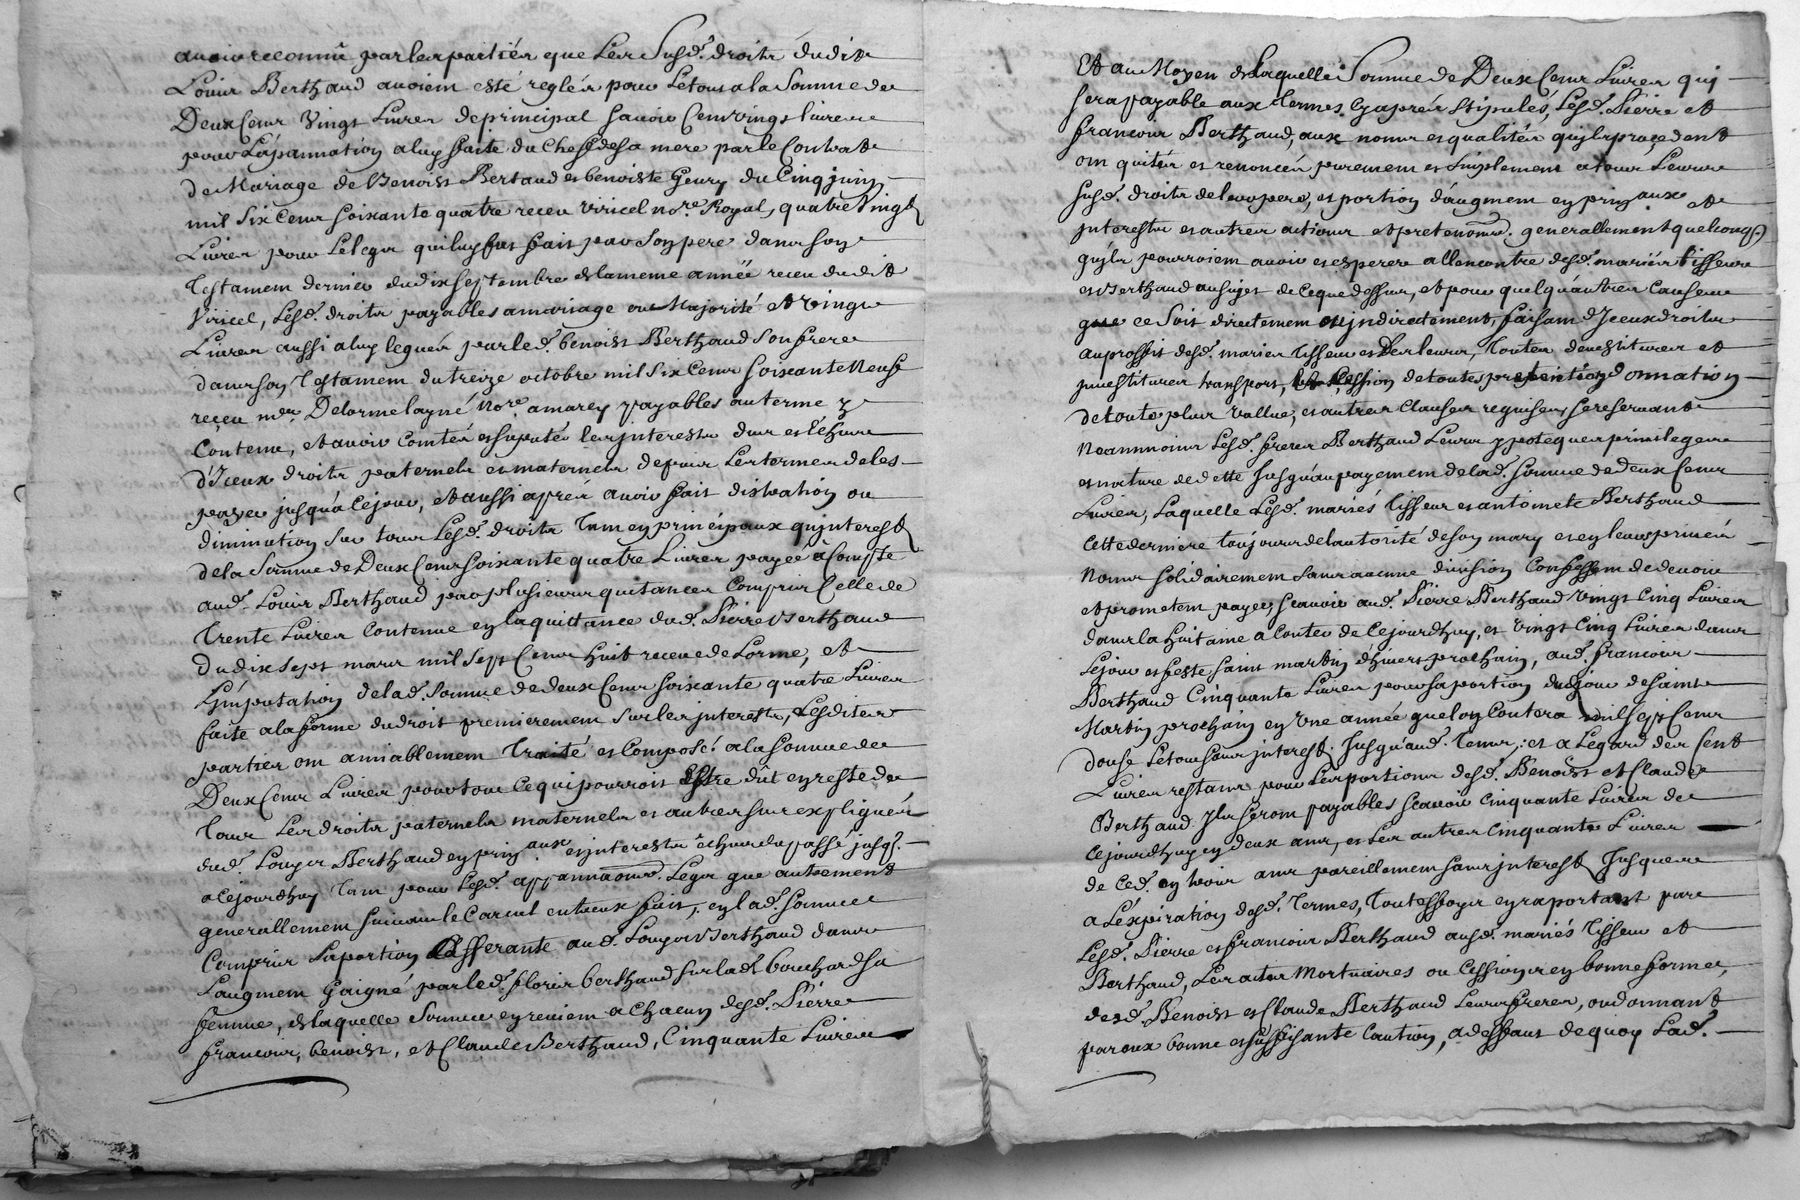 avoir reconnu par les parties que Les Susd. droits dudit
Louis Berthaud avoient esté reglés pour Le tout a la Somme de
Deux Cent Vingt Livres de principal scavoir Cent vingt livres
pour L'apannation a luy faite du Chef de sa mere par le Contrat
de Mariage de Benoist Bertaud et benoiste Geury du Cinq juin
mil Six Cent soixante quatre receu Viricel no.re Royal, quatre Vingt
Livres pour Le legat qui luy fut fait par Son pere dans son
Testament dernier du dix septembre de la meme année receu dudit
Viricel, Lesd. droits payables a mariage ou Majorité et vingt
Livres aussi a luy legués par led. benoist Berthaud Son frere
dans son Testament du treize octobre mil Six Cent Soixante Neuf
receu m.e Delorme layné No.re a marey payables au terme y
Contenu, et avoir Comtés et suputés les interests dus et Echus
d'Iceux droits paternels et maternels depuis Les termes de les
payer jusqu'a Ce jour, et aussi aprés avoir fait distration ou
diminution Sur tous Lesd. droits Tant en principaux qu'interest
de la Somme de Deux Cent soixante quatre Livres payée a Compte
aud. Louis Berthaud par plusieurs quitances Compris Celle de
Trente Livres Contenue en la quittance dud. Pierre Berthaud
du dix Sept mars mil Sept Cent huit receue de Lorme, et
L'imputation de lad. Somme de deux Cent soixante quatre Livres
faite a la forme du droit premierement Sur les interests, Lesdites
parties ont amiablement Traité et Composé a la somme de
Deux Cent Livres pour tout Ce qui pourroit Estre dût en reste de
Tous Les droits paternels maternels et autres sus expliqués
dud. Louys Berthaud en prin.aux et interests échus du passé jusq.
a Cejourdhuy Tant pour Lesd. appannaons. Legat que autrement
generallement suivant le Carcul entreux fait, en lad. somme
Compris La portion Afferante aud. Louys Berthaud dans
L'augment Gaigné par led. florir berthaud sur lad. bouchard sa
femme, de laquelle Somme en revient a Chacun desd. Pierre
francois, benoist, et Claude Berthaud, Cinquante Livres
Et au Moyen de laquelle Somme de Deux Cent Livres qui
sera payable aux Termes Cy aprés stipulés, Lesd. Pierre et
francois Berthaud, aux noms et qualités qu'ils procedent
ont quités et renoncés purement et Simplement a tous Leurs
susd. droits de leur pere, et portion d'augment en prin.aux et
interests et autres actions et pretentions. generallement quelconq.
qu'ils pourroient avoir et esperer a l'encontre desd. mariés Tisseur
et Berthaud au sujet de Ceque dessus, et pour quelqu'autres Causes
que ce Soit directement ou indirectement, faisant d'Iceux droits
au proffit desd. mariés Tisseur et Des leurs, Toutes devestitures et
jnvestitures transport, Cession de toutes pretentions donnation
de toute plus vallue, et autres Clauses requises se reservant
Neanmoins Lesd. freres Berthaud Leurs ypoteques privilege
et nature de dette Jusqu'au payement de lad. somme de deux Cent
Livres, Laquelle Lesd. mariés Tisseur et antoinete Berthaud
Cette derniere toujours de l'autorité de son mary et en leurs privés
Noms solidairement sans aucune division Confessent de devoir
et prometent payer scavoir aud. Pierre Berthaud Vingt Cinq Livres
dans la huitaine a Conter de Cejourdhuy, et Vingt Cinq Livres dans
Le jour et feste saint martin d'hivert prochain, aud. francois
Berthaud Cinquante Livres pour sa portion dud. jour de saint
Martin prochain en Une année que lon Contera mil Sept Cent
douse Le tout sans interest. Jusqu'aud. Tems; et a L'egard des Cent
Livres restant pour Les portions desd. Benoist et Claude
Berthaud Ils seront payables scavoir Cinquante Livres de
Cejourdhuy en deux ans, et Les autres Cinquante Livres
de Ced. en trois ans pareillement sans interest Jusques
a L'expiration desd. Termes, Toutesfoys en raportant par
Lesd. Pierre et francois Berthaud ausd. mariés Tisseur et
Berthaud, Les actes Mortuaires ou Cessions en bonne forme,
desd. Benoist et Claude Berthaud Leurs freres, ou donnant
par eux bonne et suffisante Caution, a deffaut de quoy Lad.